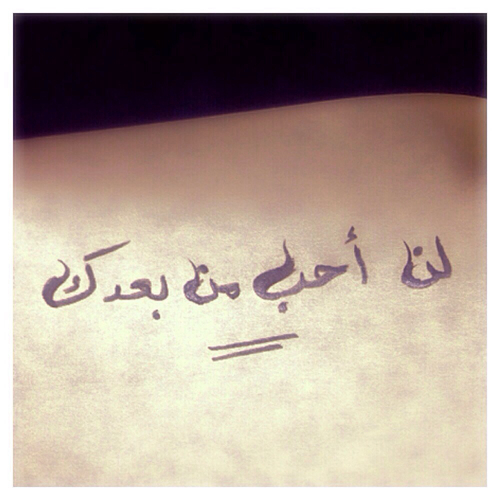 لن أحب من بعدك